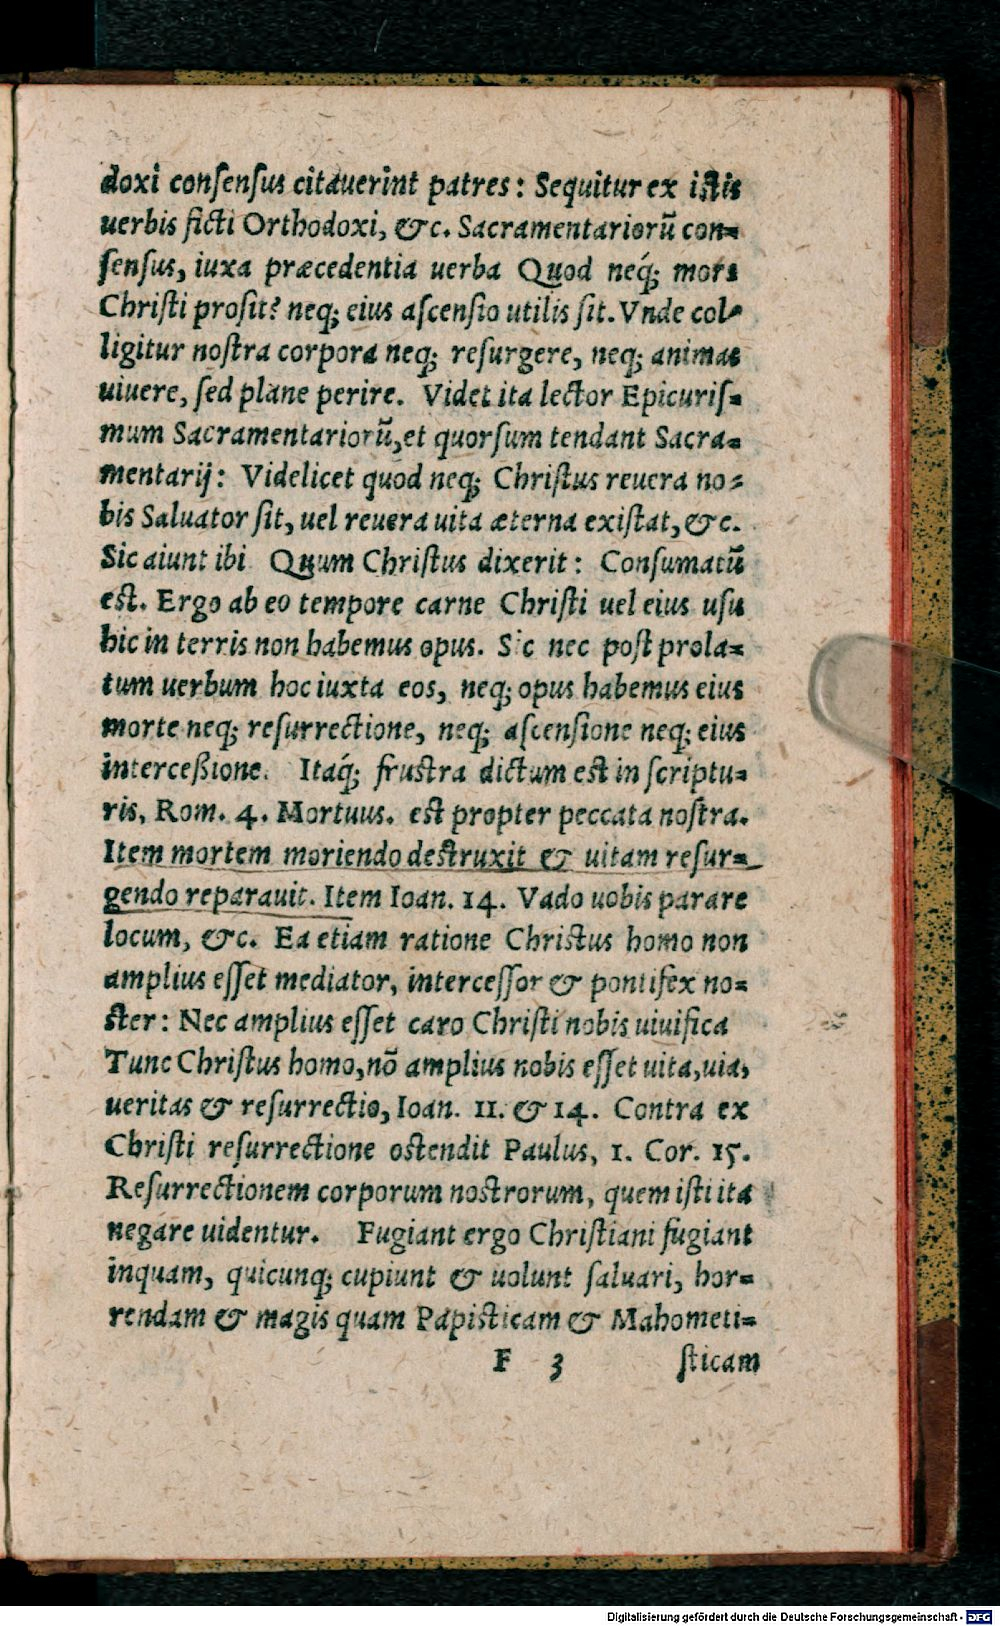 doxi consensus citauerint patres: Sequitur ex istis
uerbis ficti Orthodoxi, &c. Sacramentariorũ con=
sensus, iuxa præcedentia uerba Quod neq́; mors
Christi prosit? neq; eius ascensio utilis sit. Vnde col=
ligitur nostra corpora neq; resurgere, neq; animas
uiuere, sed plane perire. Videt ita lector Epicuris=
mum Sacramentariorũ, et quorsum tendant Sacra=
mentarij: Videlicet quod neq; Christus reuera no=
bis Saluator sit, uel reuera uita æterna existat, &c.
Sic aiunt ibi Quum Christus dixerit: Consumatũ
est. Ergo ab eo tempore carne Christi uel eius usu
hic in terris non habemus opus. Sic nec post prola=
tum uerbum hoc iuxta eos, neq; opus habemus eius
morte neq; resurrectione, neq; ascensione neq; eius
interceßione. Itaq́; frustra dictum est in scriptu=
ris, Rom. 4. Mortuus. est propter peccata nostra.
Item mortem moriendo destruxit & uitam resur=
gendo reparauit. Item Ioan. 14. Vado uobis parare
locum, &c. Ea etiam ratione Christus homo non
amplius esset mediator, intercessor & pontifex no=
ster: Nec amplius esset caro Christi nobis uiuifica
Tunc Christus homo, nõ amplius nobis esset uita, uia,
ueritas & resurrectio, Ioan. 11. & 14. Contra ex
Christi resurrectione ostendit Paulus, 1. Cor. 15.
Resurrectionem corporum nostrorum, quem isti ita
negare uidentur. Fugiant ergo Christiani fugiant
inquam, quicunq; cupiunt & uolunt saluari, hor=
rendam & magis quam Papisticam & Mahometi=
F 3 sticam
Digitalisierung gefördert durch die Deutsche Forschungsgemeinschaft - DFG